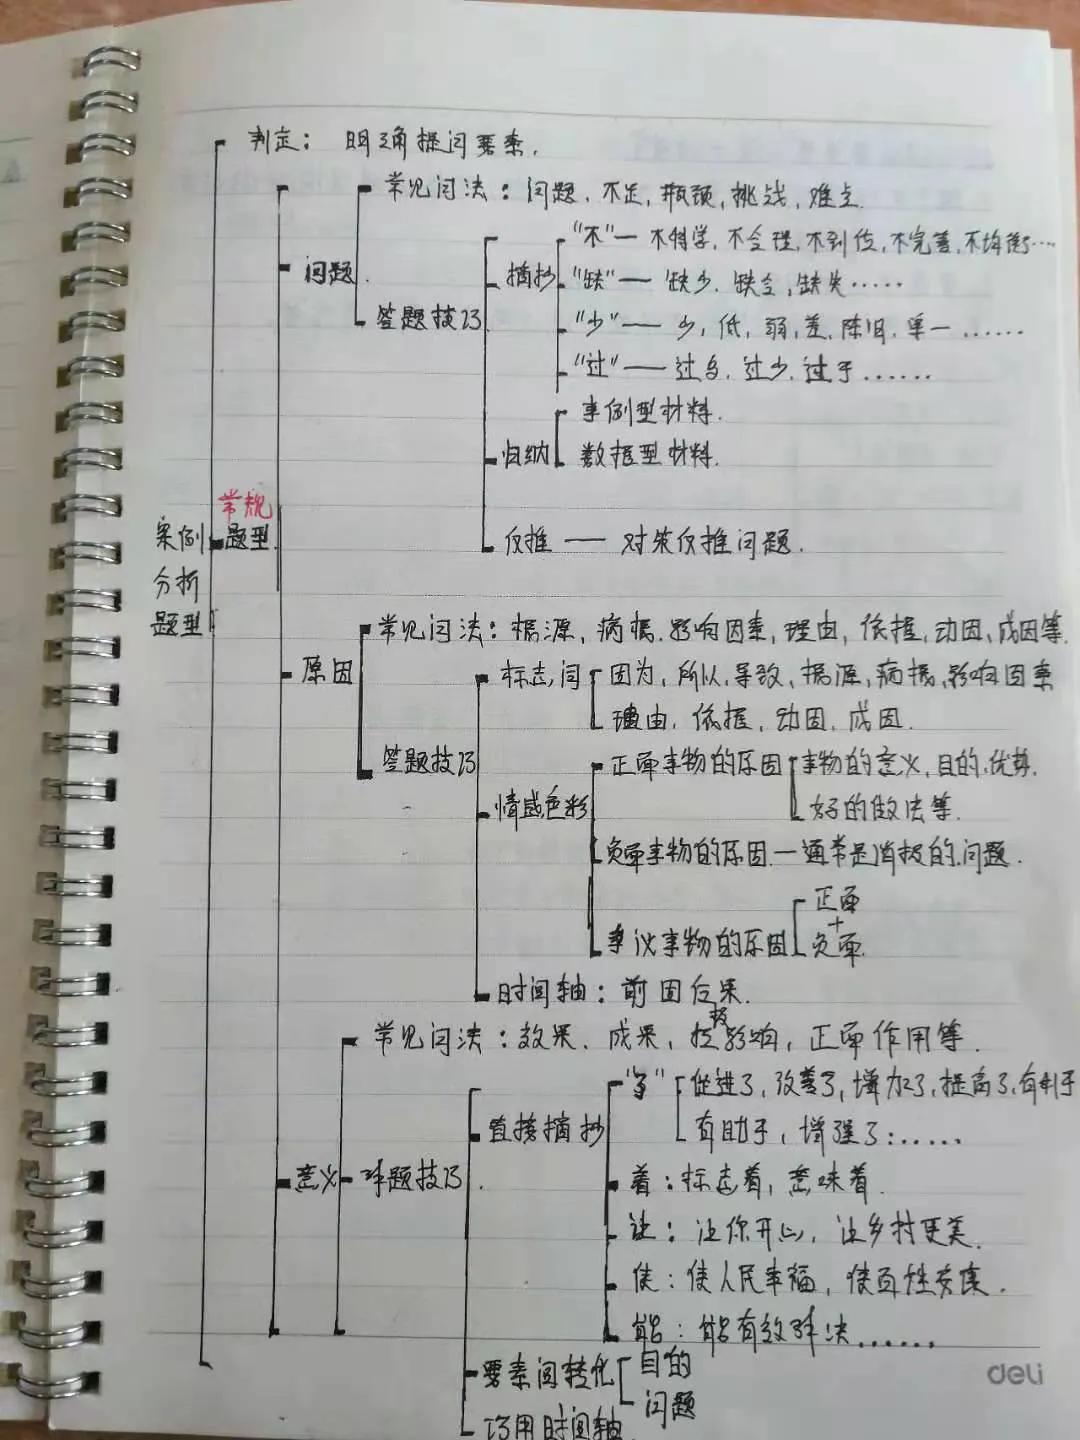 判定：明确提问要素.
常见问法：问题、不足,瓶颈,挑战,难点.
"不"— 不科学,不合理,不到位,不完善,不均衡…
问题.
摘抄
"缺"— 缺少、缺乏,缺失……
答题技巧
"少"— 少,低,弱,差,陈旧,单一……
"过"— 过多、过少、过于……
事例型材料.
归纳
数据型材料.
常规
案例
题型
反推 — 对策反推问题.
分析
题型
常见问法：根源,病根、影响因素,理由,依据,动因,成因等.
原因
标志词
因为,所以,导致,根源,病根,影响因素
理由、依据,动因,成因.
答题技巧
正面事物的原因
事物的意义,目的,优势.
情感色彩
好的做法等.
负面事物的原因 — 通常是消极的问题.
正面
+
争议事物的原因
负面
时间轴：前因后果.
常见问法：效果、成果,积极影响,正面作用等.
"了"
促进了,改善了,增加了,提高了,有利于
直接摘抄
有助于,增强了……
意义
答题技巧.
着：标志着,意味着.
让：让你开心,让乡村更美.
使：使人民幸福,使百姓安康.
能：能有效解决……
要素间转化
目的
问题
巧用时间轴.
deli